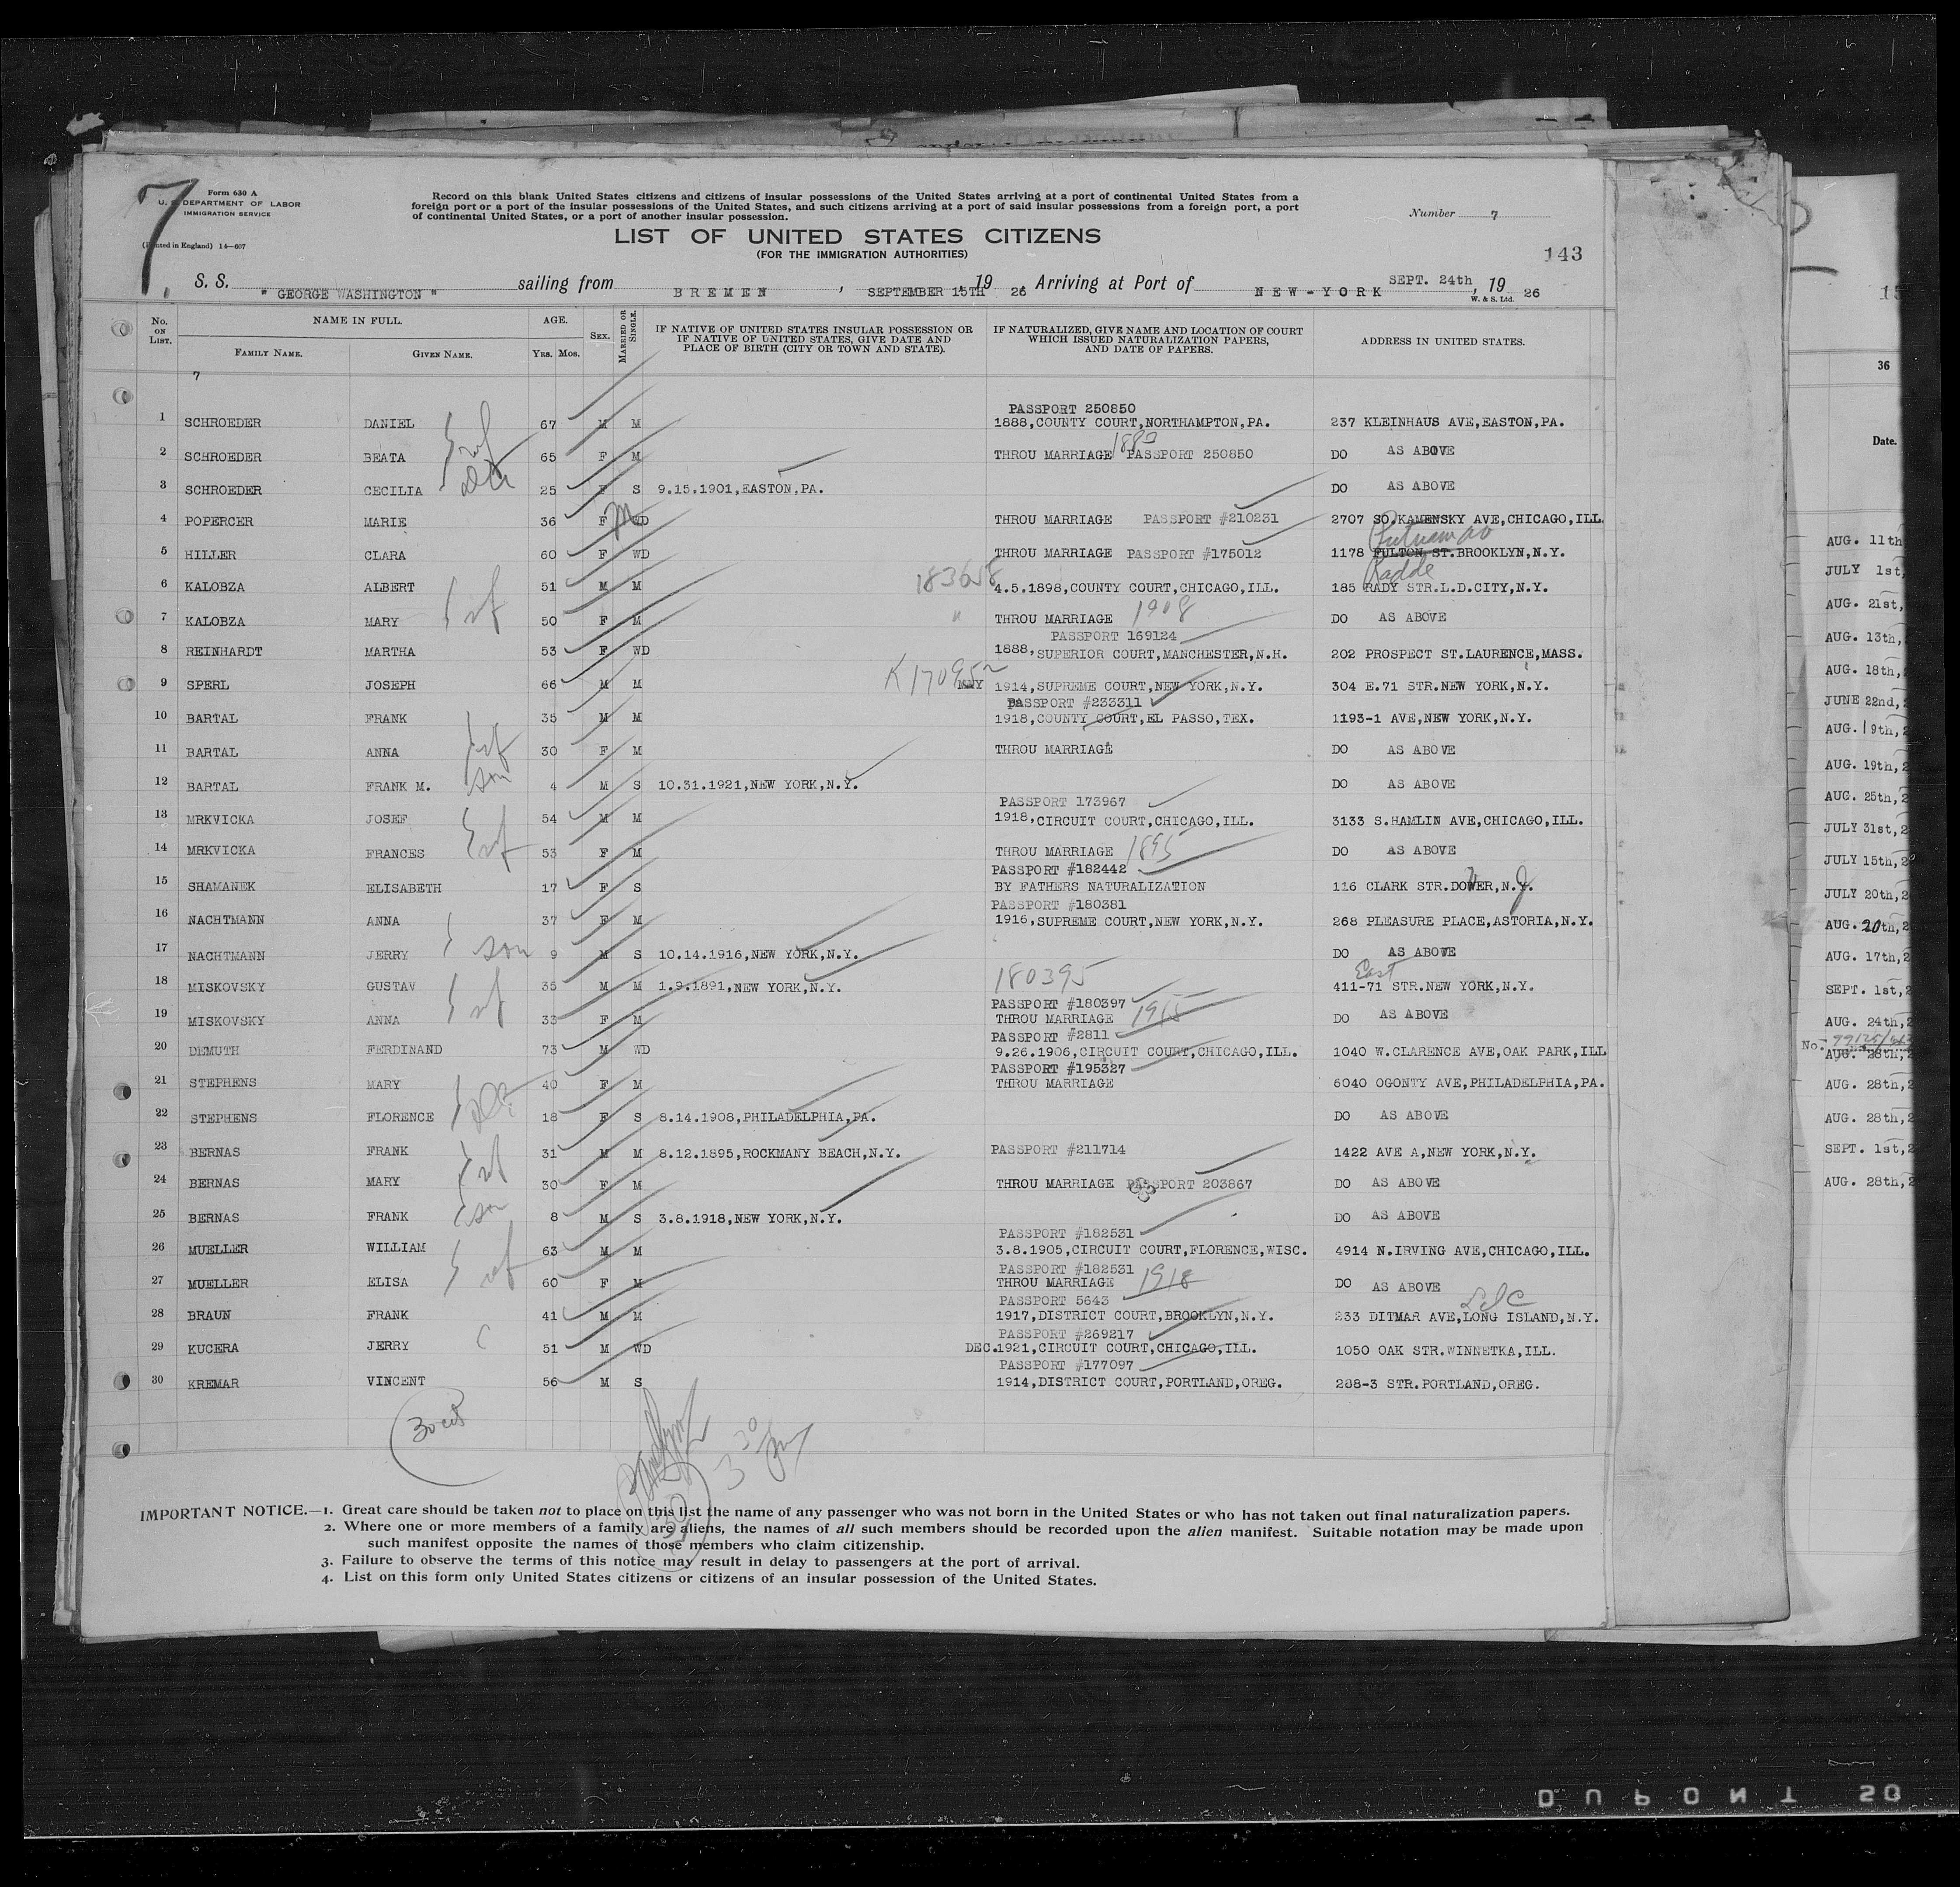 7
Form 630 A
U. S. DEPARTMENT OF LABOR
IMMIGRATION SERVICE
(Printed in England) 14—607
Record on this blank United States citizens and citizens of insular possessions of the United States arriving at a port of continental United States from a
foreign port or a port of the insular possessions of the United States, and such citizens arriving at a port of said insular possessions from a foreign port, a port
of continental United States, or a port of another insular possession.
Number 7
LIST OF UNITED STATES CITIZENS
(FOR THE IMMIGRATION AUTHORITIES)
143
S. S. " GEORGE WASHINGTON " sailing from BREMEN, SEPTEMBER 15TH 19 26, Arriving at Port of NEW-YORK SEPT. 24th, 19 26
W. & S. Ltd.
No. ON LIST. NAME IN FULL. AGE. SEX. MARRIED OR SINGLE. IF NATIVE OF UNITED STATES INSULAR POSSESSION OR IF NATIVE OF UNITED STATES, GIVE DATE AND PLACE OF BIRTH (CITY OR TOWN AND STATE). IF NATURALIZED, GIVE NAME AND LOCATION OF COURT WHICH ISSUED NATURALIZATION PAPERS, AND DATE OF PAPERS. ADDRESS IN UNITED STATES.
FAMILY NAME. GIVEN NAME. YRS. MOS.
7
PASSPORT 250850
1 SCHROEDER DANIEL 67 M M 1888,COUNTY COURT,NORTHAMPTON,PA. 237 KLEINHAUS AVE,EASTON,PA.
wf
2 SCHROEDER BEATA 65 F M THROU MARRIAGE PASSPORT 250850 DO AS ABOVE
3 SCHROEDER CECILIA 25 F S 9.15.1901,EASTON,PA. DO AS ABOVE
4 POPERCER MARIE 36 F M WD THROU MARRIAGE PASSPORT #210231 2707 SO.KAMENSKY AVE,CHICAGO,ILL.
Putnam av
5 HILLER CLARA 60 F WD THROU MARRIAGE PASSPORT #175012 1178 FULTON ST.BROOKLYN,N.Y.
183658 Radde
6 KALOBZA ALBERT 51 M M 4.5.1898,COUNTY COURT,CHICAGO,ILL. 185 RADY STR.L.D.CITY,N.Y.
7 KALOBZA MARY wf 50 F M " THROU MARRIAGE 1908 DO AS ABOVE
PASSPORT 169124
8 REINHARDT MARTHA 53 F WD 1888,SUPERIOR COURT,MANCHESTER,N.H. 202 PROSPECT ST.LAURENCE,MASS.
K 170952
9 SPERL JOSEPH 66 M M 1914,SUPREME COURT,NEW YORK,N.Y. 304 E.71 STR.NEW YORK,N.Y.
PASSPORT #233311
10 BARTAL FRANK 35 M M 1918,COUNTY COURT,EL PASSO,TEX. 1193-1 AVE,NEW YORK,N.Y.
11 BARTAL ANNA wf 30 F M THROU MARRIAGE DO AS ABOVE
12 BARTAL FRANK M. son 4 M S 10.31.1921,NEW YORK,N.Y. DO AS ABOVE
PASSPORT 173967
13 MRKVICKA JOSEF 54 M M 1918,CIRCUIT COURT,CHICAGO,ILL. 3133 S.HAMLIN AVE,CHICAGO,ILL.
14 MRKVICKA FRANCES wf 53 F M THROU MARRIAGE 1895 DO AS ABOVE
PASSPORT #182442
15 SHAMANEK ELISABETH 17 F S BY FATHERS NATURALIZATION 116 CLARK STR.DOWER,N.J.
PASSPORT #180381
16 NACHTMANN ANNA 37 F M 1916,SUPREME COURT,NEW YORK,N.Y. 268 PLEASURE PLACE,ASTORIA,N.Y.
17 NACHTMANN JERRY son 9 M S 10.14.1916,NEW YORK,N.Y. DO AS ABOVE
East
18 MISKOVSKY GUSTAV 35 M M 1.9.1891,NEW YORK,N.Y. 180395 411-71 STR.NEW YORK,N.Y.
PASSPORT #180397
19 MISKOVSKY ANNA wf 33 F M THROU MARRIAGE DO AS ABOVE
PASSPORT #2811
20 DEMUTH FERDINAND 73 M WD 9.26.1906,CIRCUIT COURT,CHICAGO,ILL. 1040 W.CLARENCE AVE,OAK PARK,ILL
PASSPORT #195327
21 STEPHENS MARY 40 F M THROU MARRIAGE 6040 OGONTY AVE,PHILADELPHIA,PA.
22 STEPHENS FLORENCE 18 F S 8.14.1908,PHILADELPHIA,PA. DO AS ABOVE
23 BERNAS FRANK 31 M M 8.12.1895,ROCKMANY BEACH,N.Y. PASSPORT #211714 1422 AVE A,NEW YORK,N.Y.
24 BERNAS MARY wf 30 F M THROU MARRIAGE PASSPORT 203867 DO AS ABOVE
25 BERNAS FRANK son 8 M S 3.8.1918,NEW YORK,N.Y. DO AS ABOVE
PASSPORT #182531
26 MUELLER WILLIAM 63 M M 3.8.1905,CIRCUIT COURT,FLORENCE,WISC. 4914 N.IRVING AVE,CHICAGO,ILL.
PASSPORT #182531
27 MUELLER ELISA wf 60 F M THROU MARRIAGE 1918 DO AS ABOVE
PASSPORT 5643
28 BRAUN FRANK 41 M M 1917,DISTRICT COURT,BROOKLYN,N.Y. 233 DITMAR AVE,LONG ISLAND,N.Y.
PASSPORT #269217
29 KUCERA JERRY C 51 M WD DEC.1921,CIRCUIT COURT,CHICAGO,ILL. 1050 OAK STR.WINNETKA,ILL.
PASSPORT #177097
30 KREMAR VINCENT 56 M S 1914,DISTRICT COURT,PORTLAND,OREG. 288-3 STR.PORTLAND,OREG.
IMPORTANT NOTICE.—1. Great care should be taken not to place on this list the name of any passenger who was not born in the United States or who has not taken out final naturalization papers.
2. Where one or more members of a family are aliens, the names of all such members should be recorded upon the alien manifest. Suitable notation may be made upon
such manifest opposite the names of those members who claim citizenship.
3. Failure to observe the terms of this notice may result in delay to passengers at the port of arrival.
4. List on this form only United States citizens or citizens of an insular possession of the United States.
36
Date.
AUG. 11th
JULY 1st,
AUG. 21st,
AUG. 13th,
AUG. 18th,
JUNE 22nd,
AUG. 19th,
AUG. 19th,
AUG. 25th,
JULY 31st,
JULY 15th,
JULY 20th,
AUG. 20th,
AUG. 17th,
SEPT. 1st,
AUG. 24th,
No.
AUG. 28th,
AUG. 28th,
AUG. 28th,
SEPT. 1st,
AUG. 28th,
DUPONT